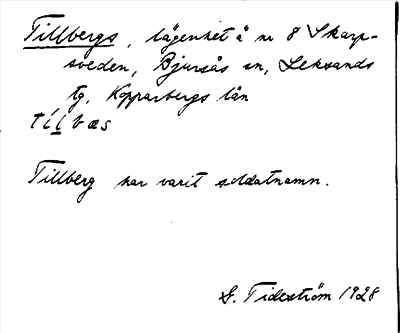 Tillbergs, lägenhet å nr 8 Skarp-
sveden, Bjursås sn, Leksands
tg, Kopparbergs län
tílbæs
Tillberg har varit soldatnamn.
G. Tideström 1928